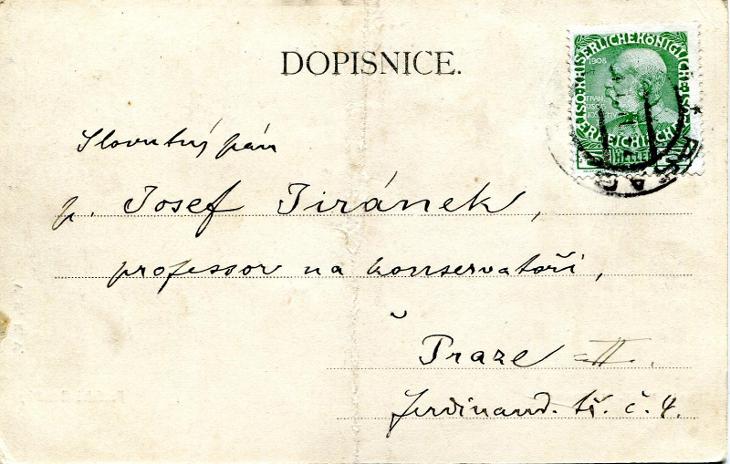 DOPISNICE.
KAISERLICHE KÖNIGLICHE ÖSTERREICHISCHE
1908
Slovutný pán
p. Josef Jiránek,
professor na konservatoři,
v
Praze
Ferdinand. tř. č. 4.